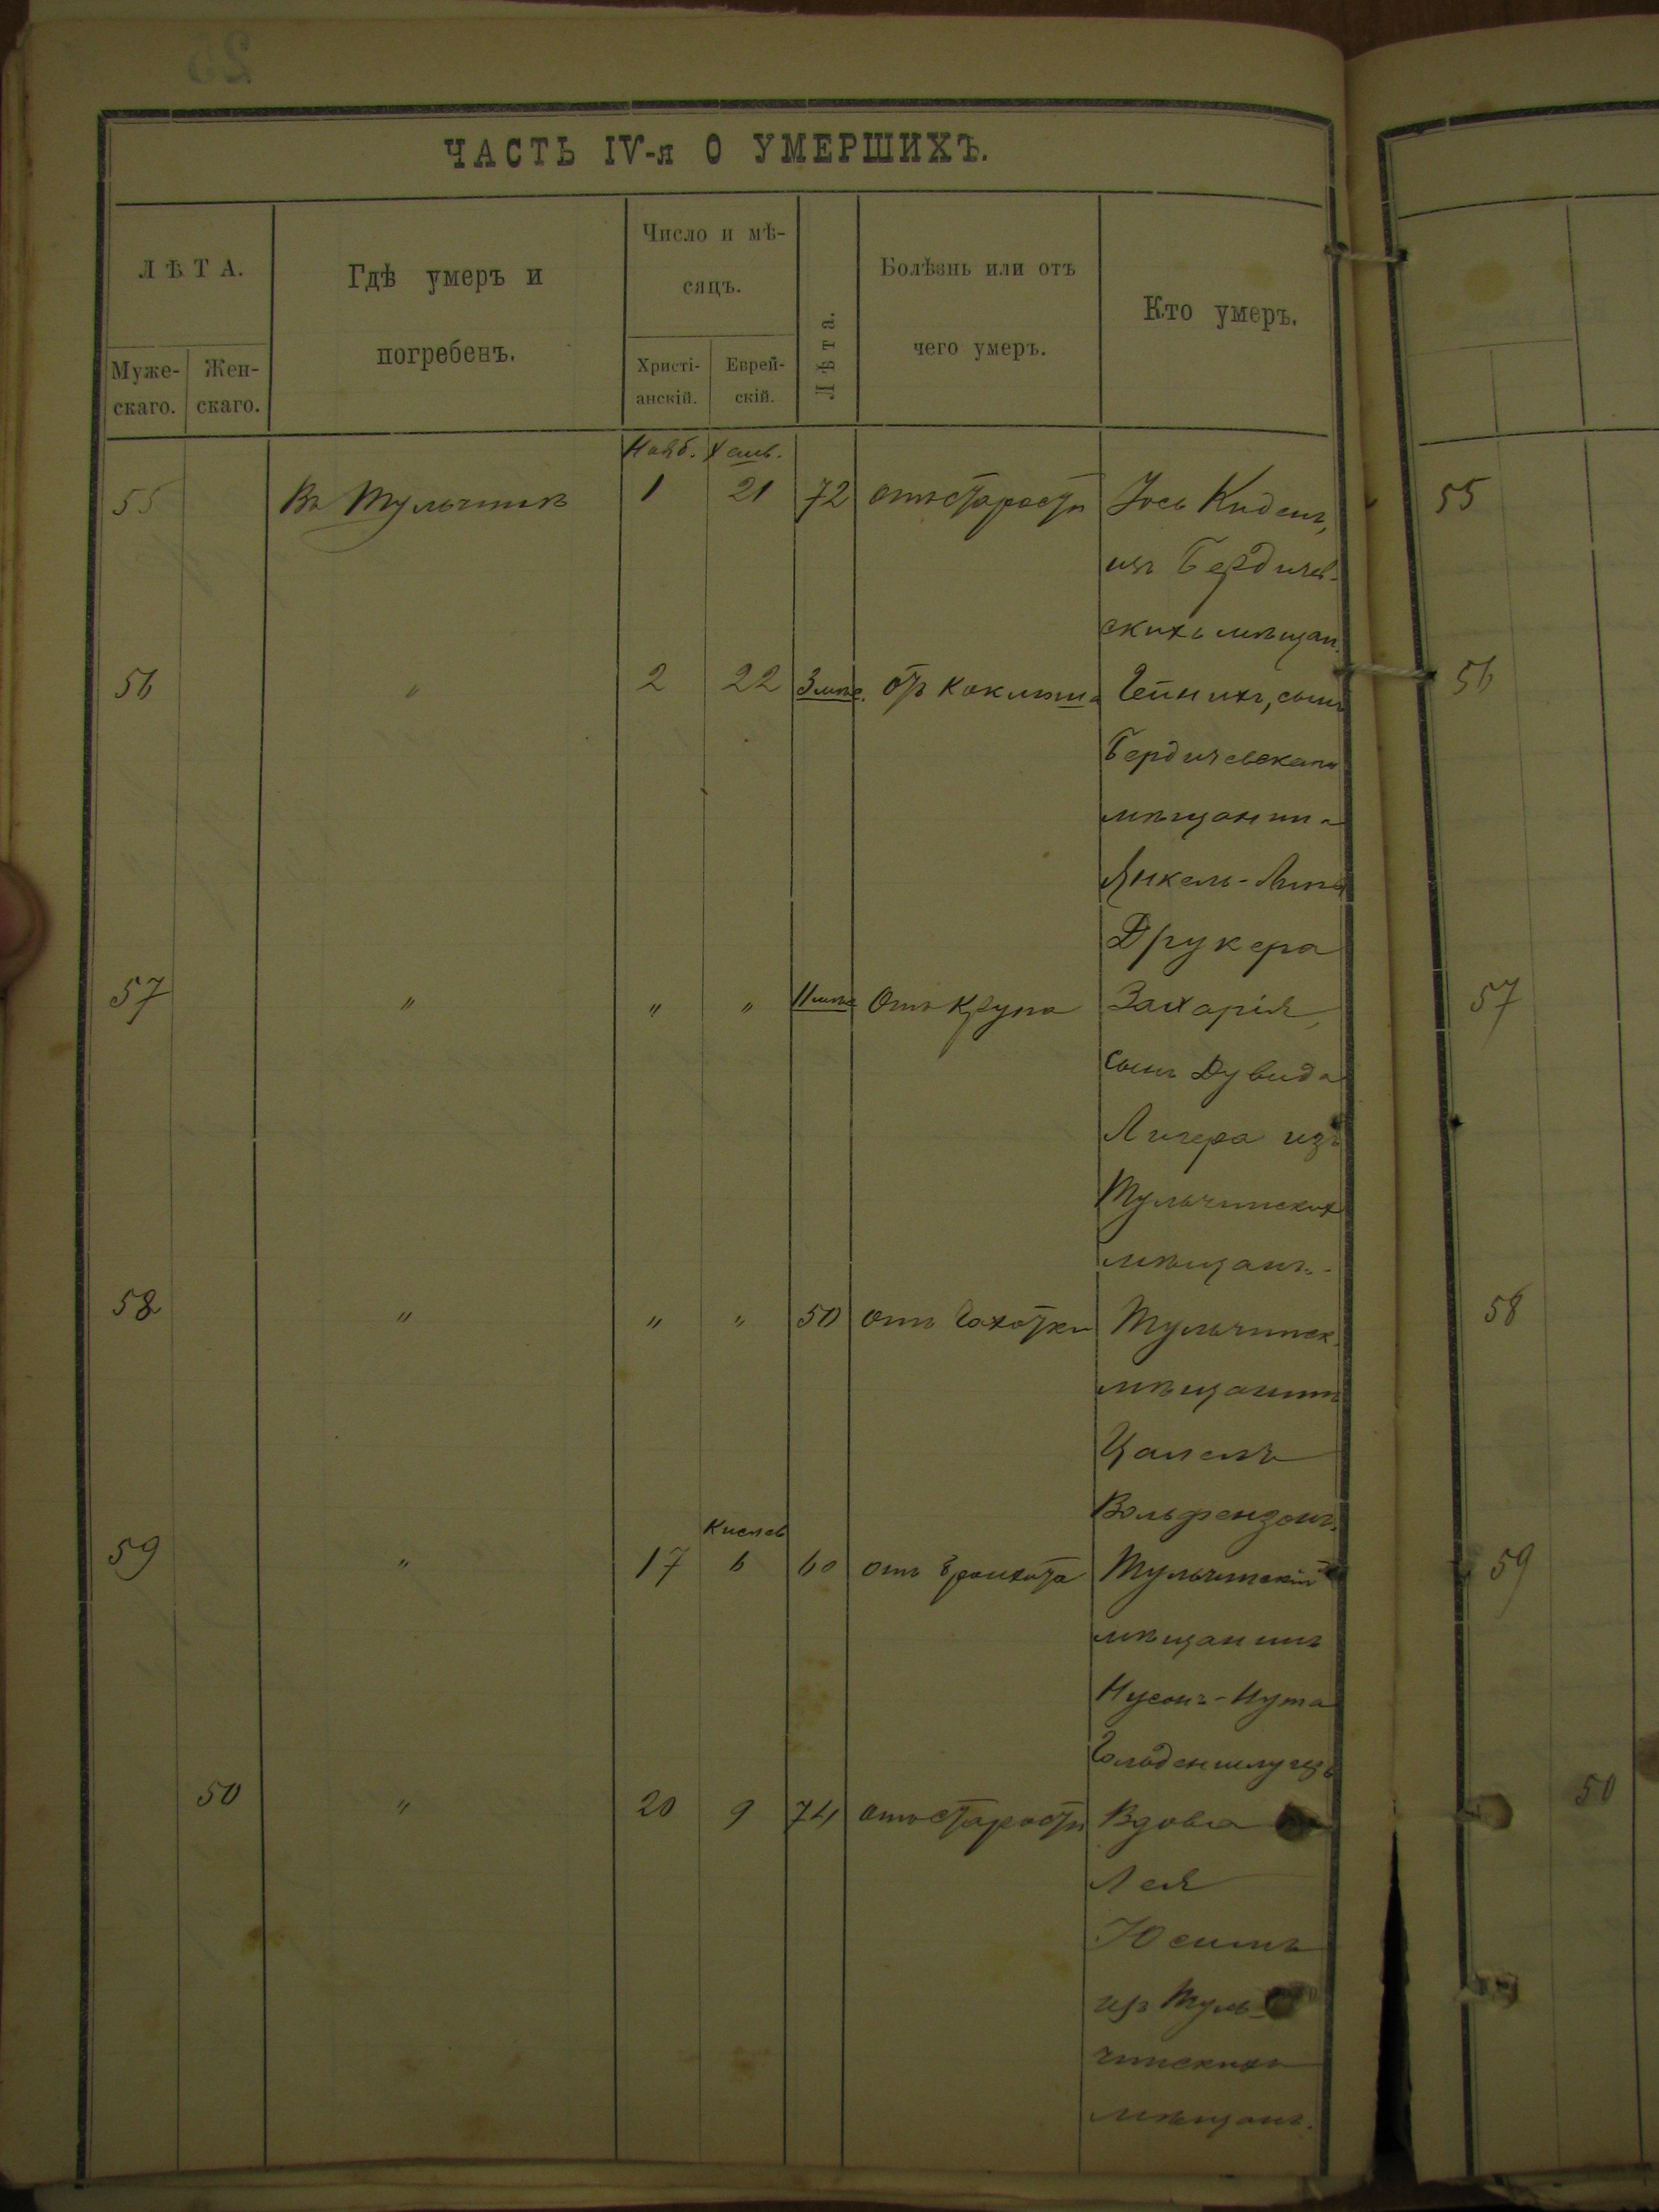 25
ЧАСТЬ IV-я О УМЕРШИХЪ.
ЛѢТА.
Муже-
скаго.
Жен-
скаго.
Гдѣ умеръ и
погребенъ.
Число и мѣ-
сяцъ.
Христі-
анскій.
Еврей-
скій.
Лѣта.
Болѣзнь или отъ
чего умеръ.
Кто умеръ.
Нояб. Хешв.
55 Въ Тульчинѣ 1 21 72 отъ старости Іось Киденъ, 55
изъ Бердичев-
скихъ мѣщан.
56 " 2 22 3 мѣс. отъ коклюша Гейнихъ, сынъ 56
Бердичевскаго
мѣщанина
Янкель-Липа
Друкера
57 " " " 11 мѣс отъ крупа Захарія, 57
сынъ Дувида
Лигера изъ
Тульчинских
мѣщанъ.
58 " " " 50 отъ чахотки Тульчинск. 58
мѣщанинъ
Цалель
Вольфензонъ.
Кислев
59 " 17 6 60 отъ бронхита Тульчинскій 59
мѣщанинъ
Нусонъ-Нута
50 " 20 9 74 отъ старости Вдова 50
Лея
изъ Туль-
чинскихъ
мѣщанъ.